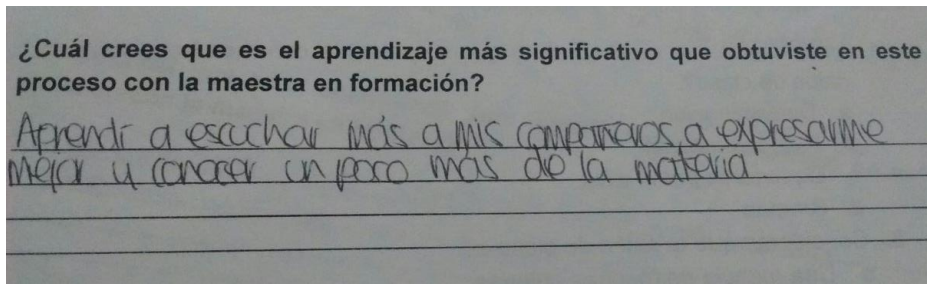 ¿Cuál crees que es el aprendizaje más significativo que obtuviste en este
proceso con la maestra en formación?
Aprendí a escuchar más a mis compañeros, a expresarme
mejor y conocer un poco más de la materia